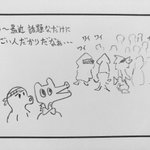 〜最近 話題なだけに
ごい人だかりだなぁ・・・
ワイ
ワイ
ワイ